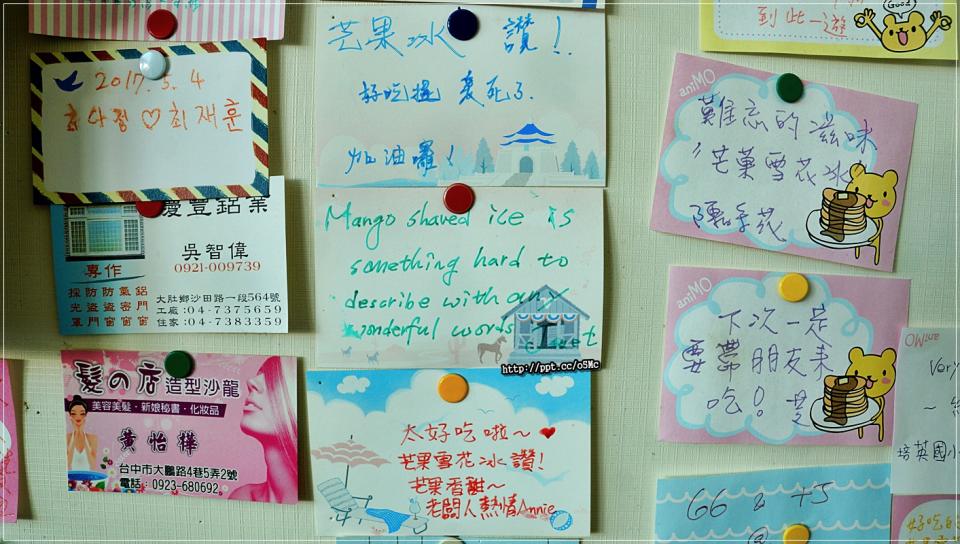 2017.5.4
최사정 ♡ 최재훈
慶豐鋁業
吳智偉
0921-009739
專作
採防防氣鋁
光盜盜密門
罩門窗窗窗
大肚鄉沙田路一段564號
工廠:04-7375659
住家:04-7383359
髮の店 造型沙龍
美容美髮・新娘秘書・化妝品
黃怡樺
台中市大鵬路4巷5弄2號
電話:0923-680692
芒果冰 讚!
好吃 死了.
加油囉!
Mango shaved ice is
something hard to
describe with any
wonderful words
http://ppt.cc/o5Mc
太好吃啦~♥
芒果雪花冰讚!
芒果香甜~
老闆人熱情Annie
Good
到此一遊
aniMO
難忘的滋味
芒菓雪花冰
aniMO
下次一定
要帶朋友來
吃!
66
aniMO
Very
培英國小
好吃的